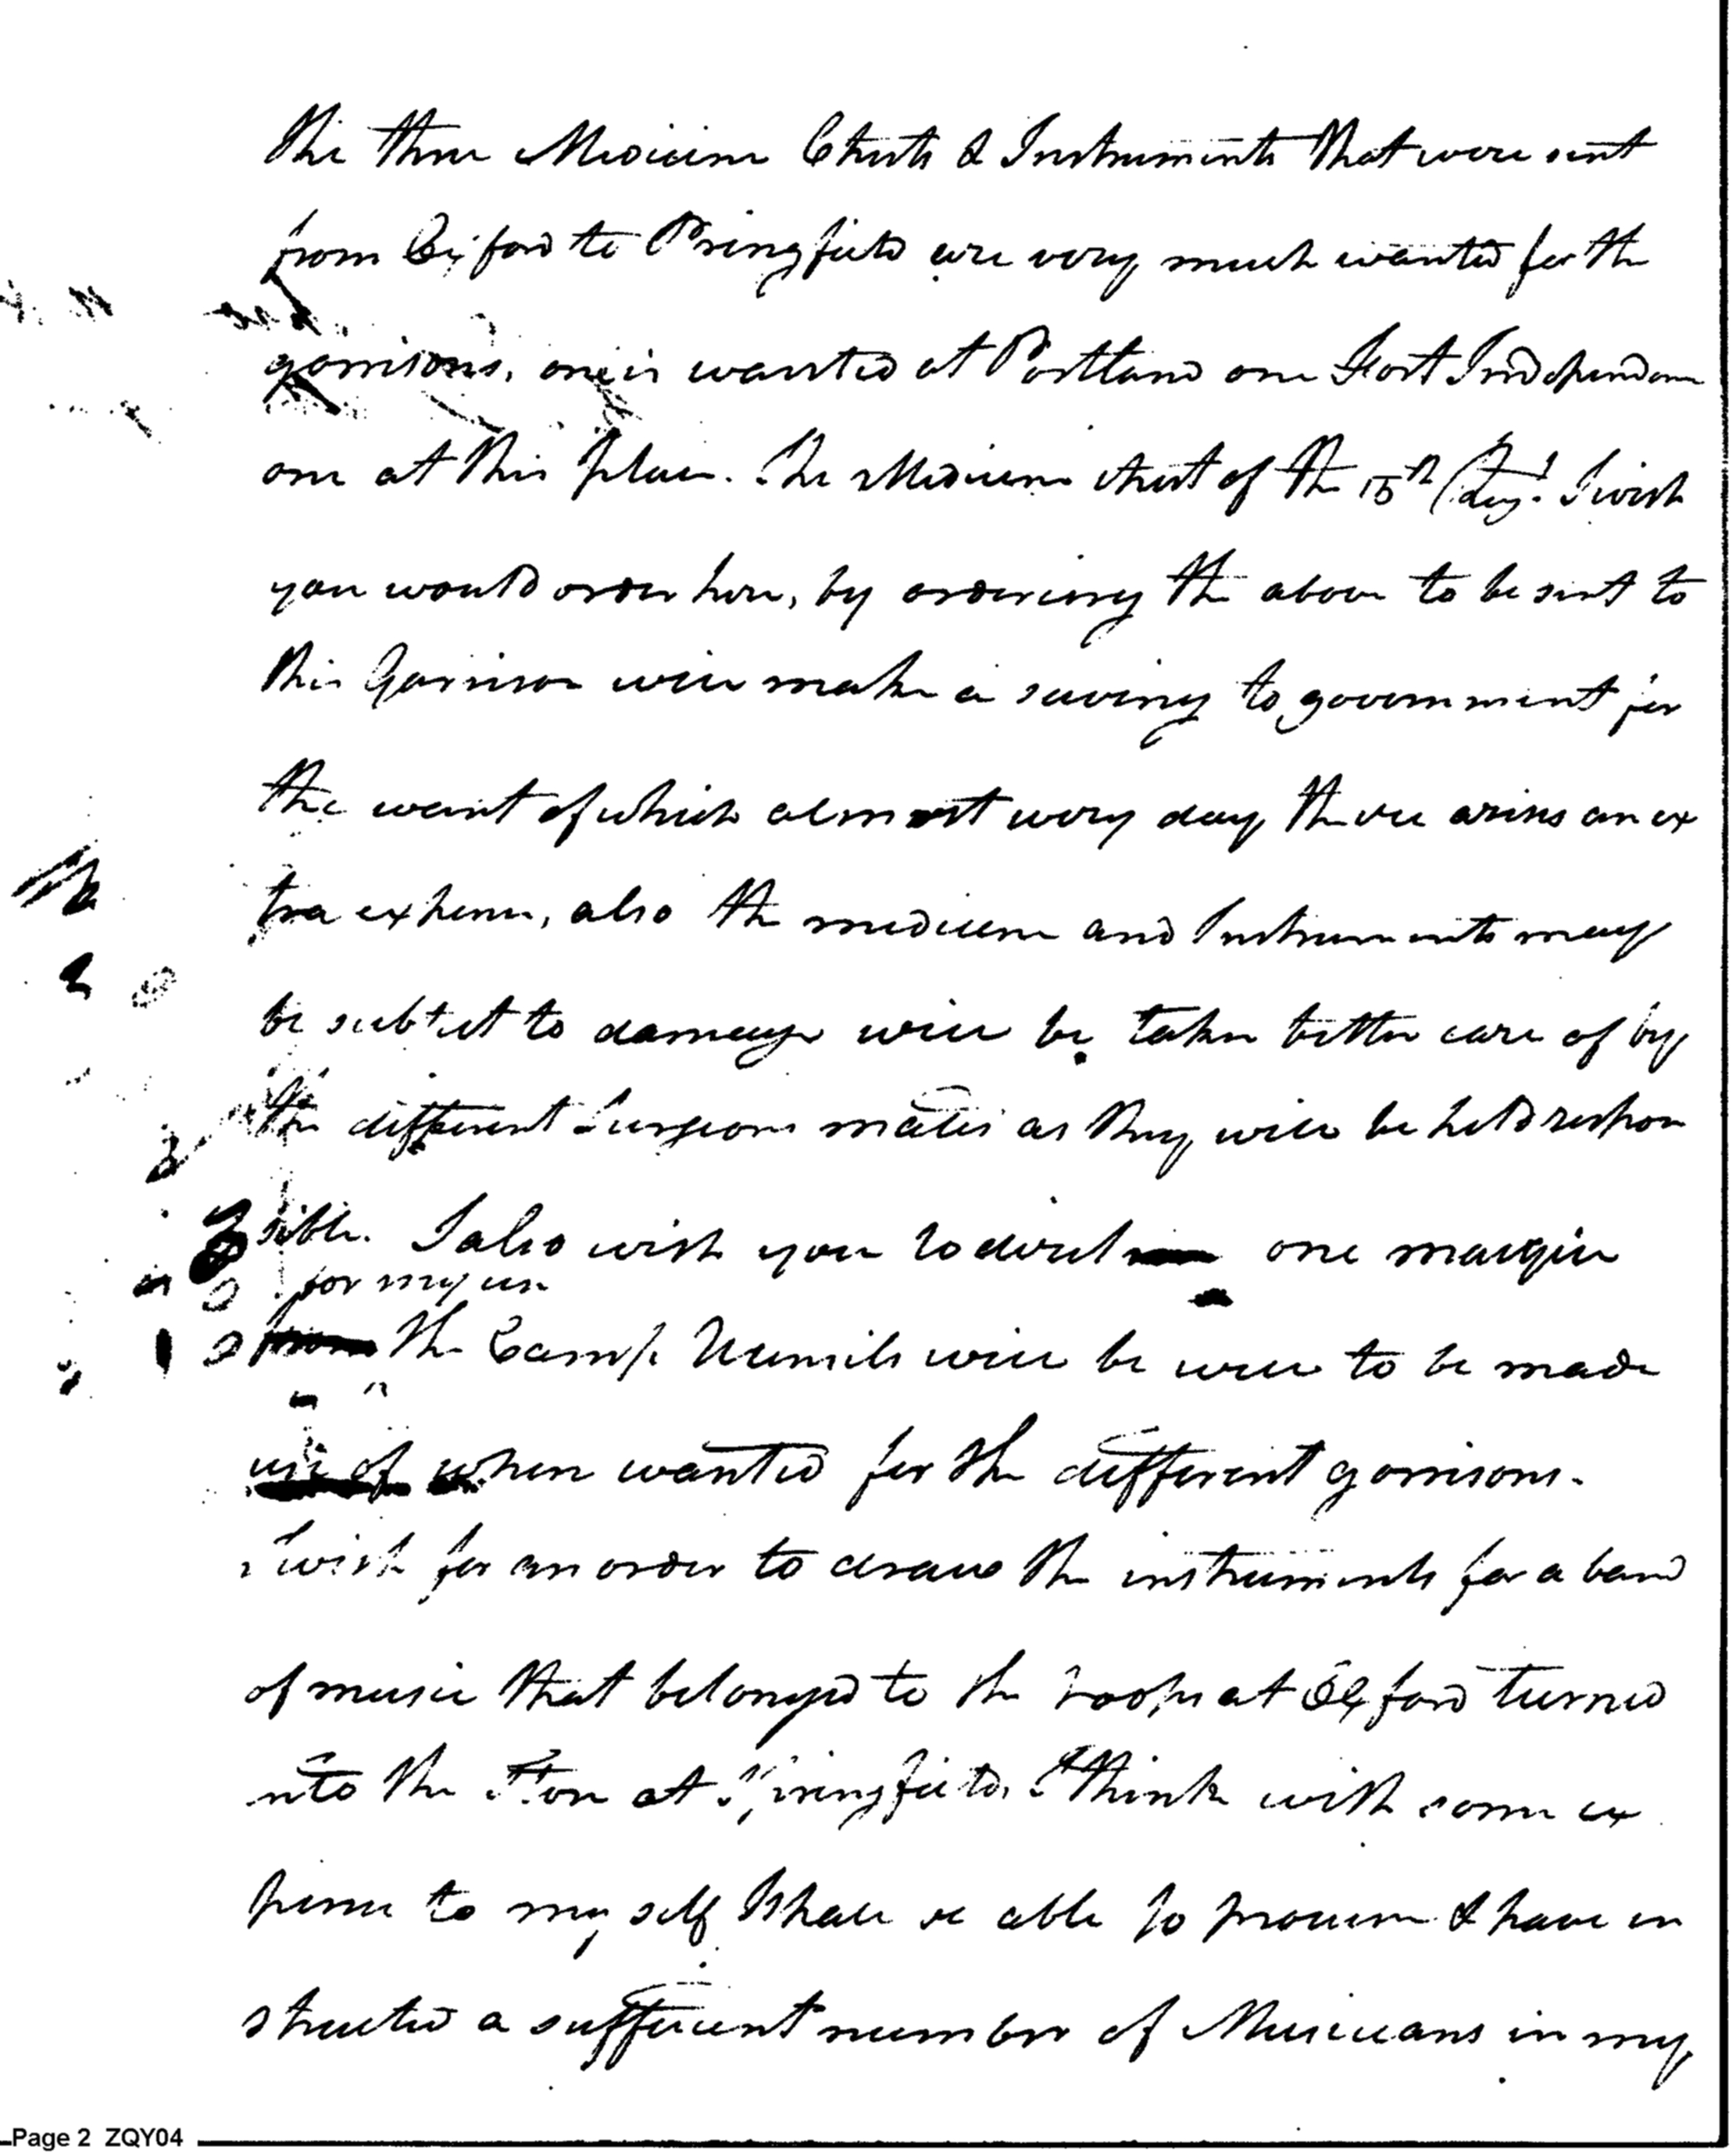 The three Medicine Chests & Instruments that were sent
from Oxford to Springfield are very much wanted for the
garrisons, one is wanted at Portland one Fort Independence
one at this place. The Medicine chest of the 15th Regt. I wish
you would order here, by ordering the above to be sent to
this Garrison will make a saving to government for
the want of which almost every day there arises an ex
tra expense, also the medicine and Instruments may
be subject to damage will be taken better care of by
the different Surgeons mates as they will be held respon
sible. I also wish you to direct one marquee
for my use
from the Camp Utensils will be well to be made
use of when wanted for the different garrisons.
I wish for an order to draw the instruments for a band
of music that belonged to the troops at Oxford turned
into the Store at Springfield. I think with some ex
pense to my self I shall be able to procure & have in
structed a sufficient number of Musicians in my
Page 2 ZQY04